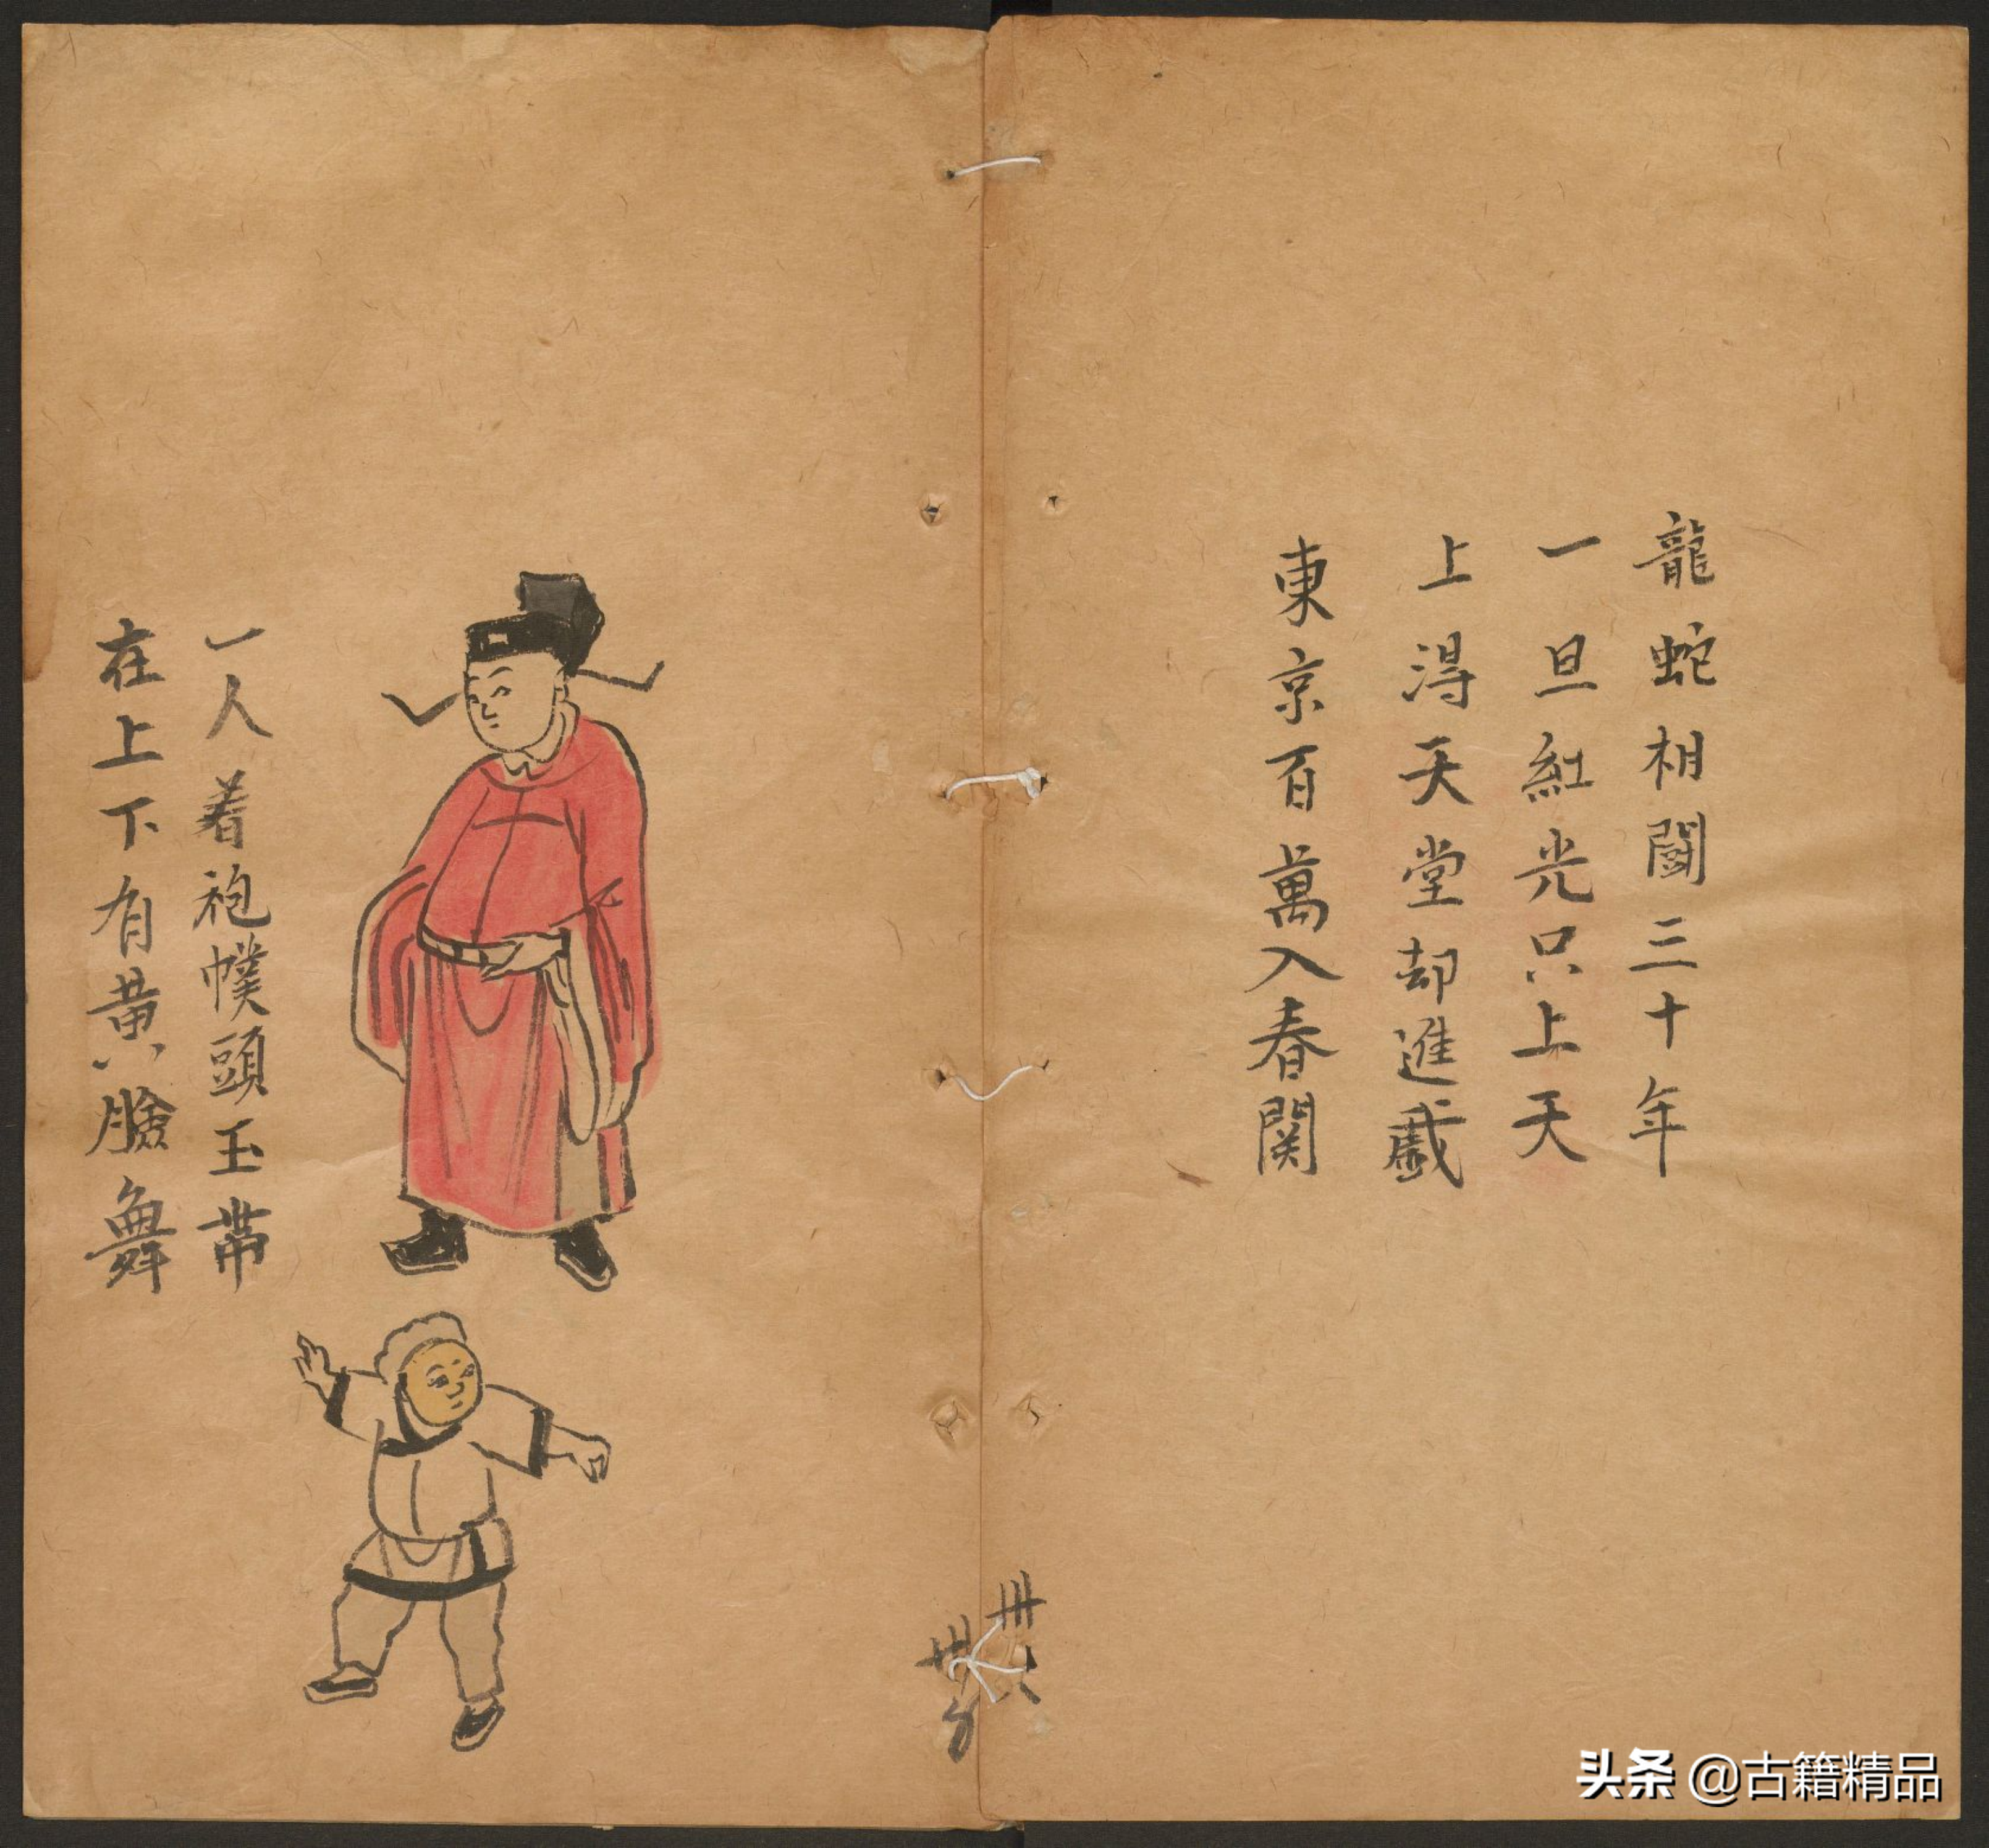 龍蛇相鬪三十年
一旦紅光只上天
上淂天堂却進戲
東京百萬入春関
一人着袍幞頭玉帶
在上下有黄臉舞
卅六
头条 @古籍精品